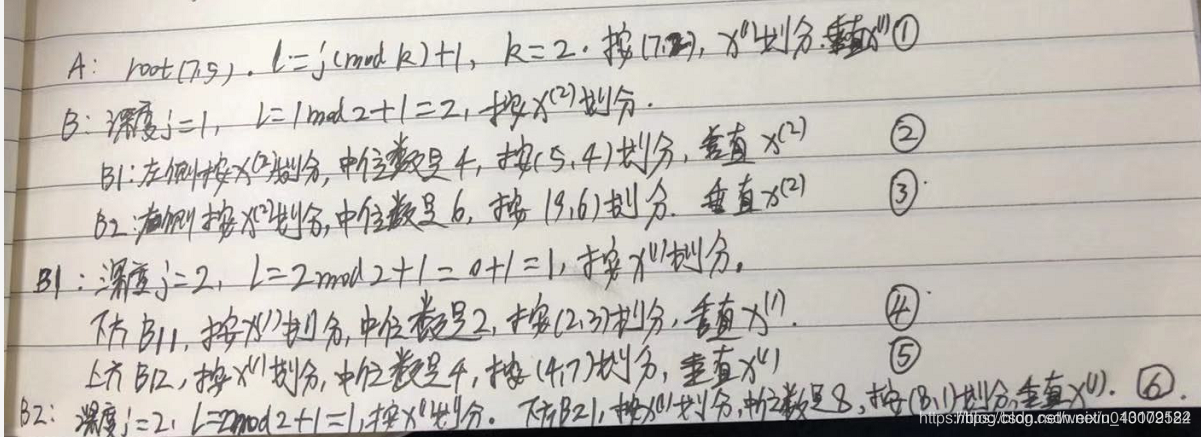 A: root(7,5). l=j(mod k)+1, k=2. 按(7,2), x⁽¹⁾划分. 垂直x⁽¹⁾ ①
B: 深度j=1, l=1mod2+1=2, 按x⁽²⁾划分.
B1: 左侧按x⁽²⁾划分, 中位数是4, 按(5,4)划分, 垂直x⁽²⁾ ②
B2: 右侧按x⁽²⁾划分, 中位数是6, 按(9,6)划分. 垂直x⁽²⁾ ③
B1: 深度j=2, l=2mod2+1=0+1=1, 按x⁽¹⁾划分.
下方B11, 按x⁽¹⁾划分, 中位数是2, 按(2,3)划分, 垂直x⁽¹⁾. ④
上方B12, 按x⁽¹⁾划分, 中位数是4, 按(4,7)划分, 垂直x⁽¹⁾ ⑤
B2: 深度j=2, l=2mod2+1=1, 按x⁽¹⁾划分. 下方B21, 按x⁽¹⁾划分, 中位数是8, 按(8,1)划分, 垂直x⁽¹⁾. ⑥